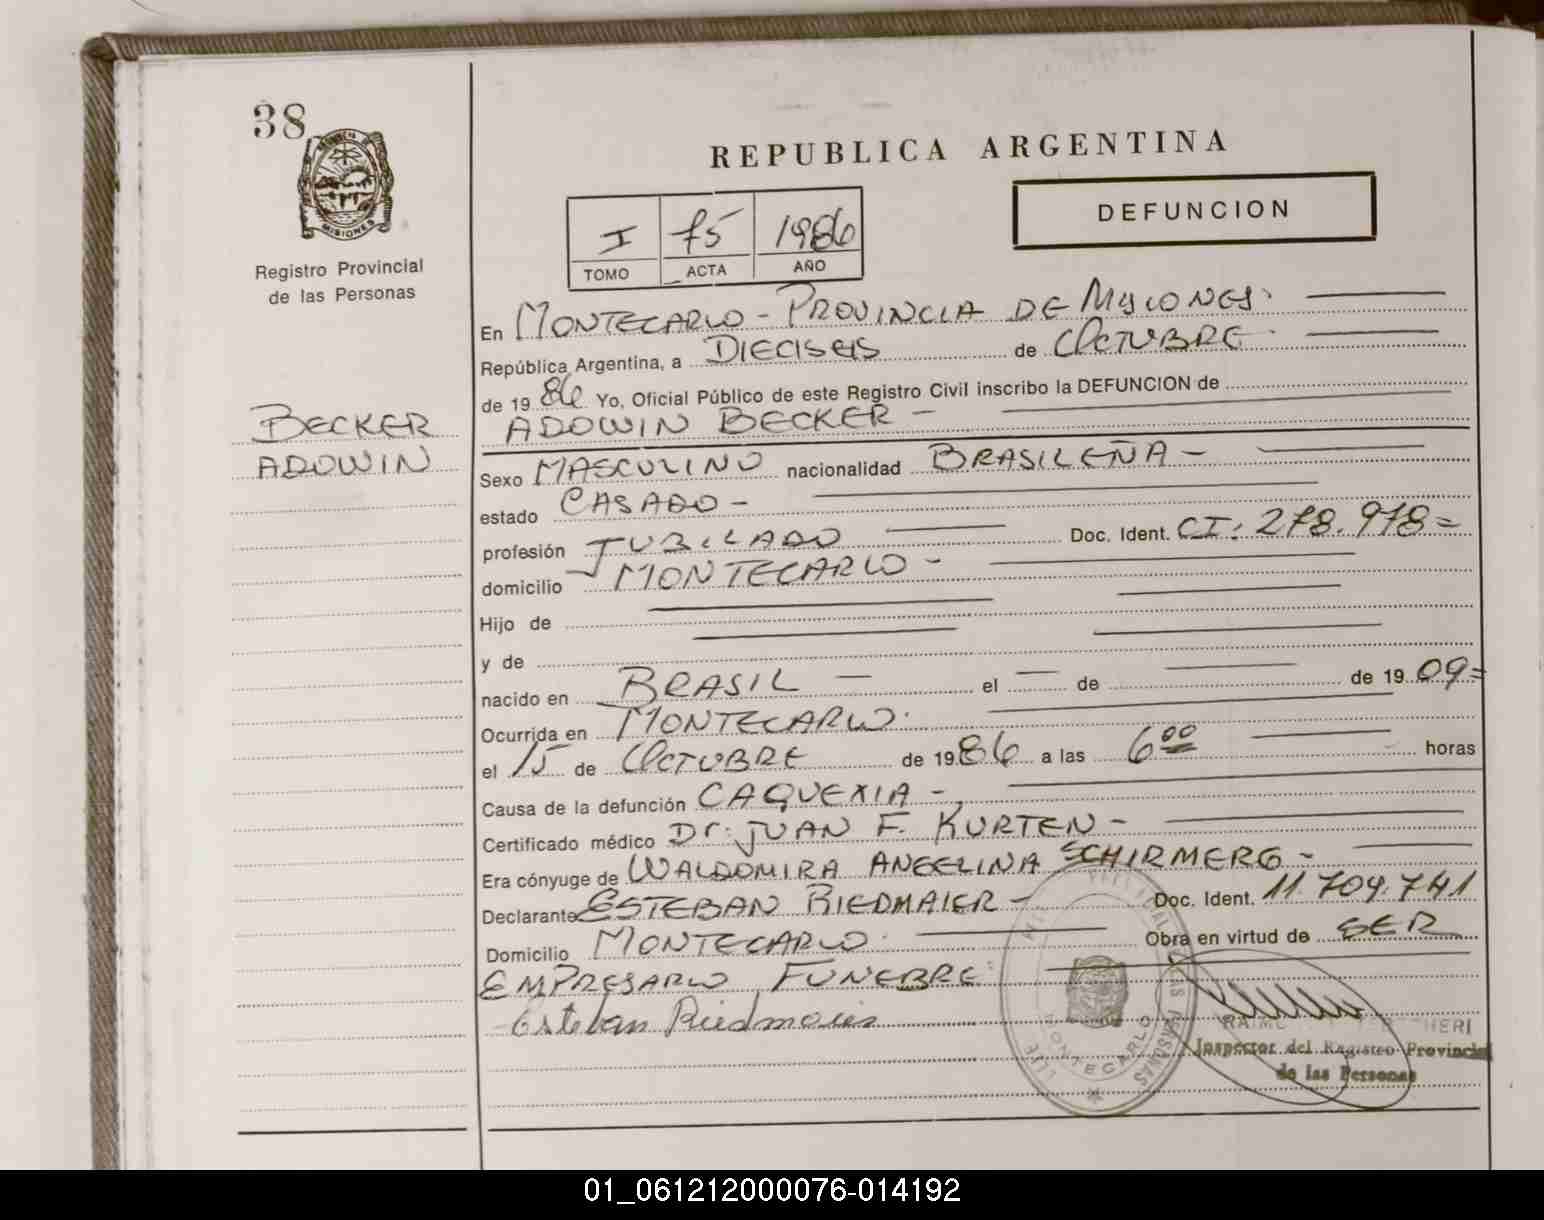 38
MISIONES
Registro Provincial
de las Personas
BECKER
ADOWIN
REPUBLICA ARGENTINA
I 75 1986
TOMO ACTA AÑO
DEFUNCION
En MONTECARLO - PROVINCIA DE MISIONES.
República Argentina, a DIECISEIS de OCTUBRE
de 19 86 Yo, Oficial Público de este Registro Civil inscribo la DEFUNCION de
ADOWIN BECKER -
Sexo MASCULINO nacionalidad BRASILEÑA -
estado CASADO -
profesión JUBILADO Doc. Ident. CI: 278.978=
domicilio MONTECARLO -
Hijo de
y de
nacido en BRASIL - el - de - de 19 09=
Ocurrida en MONTECARLO.
el 15 de OCTUBRE de 1986 a las 6 00 horas
Causa de la defunción CAQUEXIA -
Certificado médico Dr: JUAN F. KURTEN -
Era cónyuge de WALDOMIRA ANGELINA SCHIRMERG -
Declarante ESTEBAN RIEDMAIER - Doc. Ident. 11.709.741
Domicilio MONTECARLO. Obra en virtud de SER
EMPRESARIO FUNEBRE
Esteban Riedmaier
MONTECARLO
Inspector del Registro Provincial
de las Personas
01_061212000076-014192